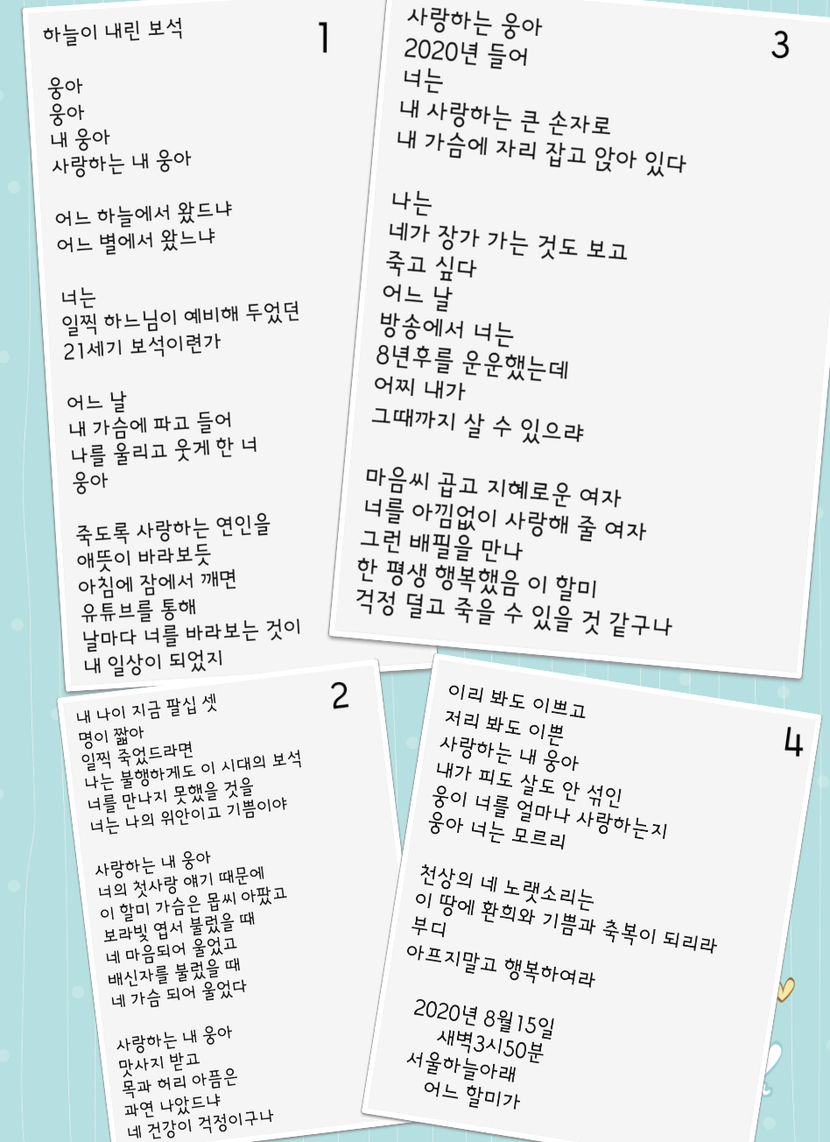 하늘이 내린 보석
1
웅아
웅아
내 웅아
사랑하는 내 웅아
어느 하늘에서 왔드냐
어느 별에서 왔느냐
너는
일찍 하느님이 예비해 두었던
21세기 보석이련가
어느 날
내 가슴에 파고 들어
나를 울리고 웃게 한 너
웅아
죽도록 사랑하는 연인을
애뜻이 바라보듯
아침에 잠에서 깨면
유튜브를 통해
날마다 너를 바라보는 것이
내 일상이 되었지
2
내 나이 지금 팔십 셋
명이 짧아
일찍 죽었드라면
나는 불행하게도 이 시대의 보석
너를 만나지 못했을 것을
너는 나의 위안이고 기쁨이야
사랑하는 내 웅아
너의 첫사랑 얘기 때문에
이 할미 가슴은 몹씨 아팠고
보라빛 엽서 불렀을 때
네 마음되어 울었고
배신자를 불렀을 때
네 가슴 되어 울었다
사랑하는 내 웅아
맛사지 받고
목과 허리 아픔은
과연 나았드냐
네 건강이 걱정이구나
3
사랑하는 웅아
2020년 들어
너는
내 사랑하는 큰 손자로
내 가슴에 자리 잡고 앉아 있다
나는
네가 장가 가는 것도 보고
죽고 싶다
어느 날
방송에서 너는
8년후를 운운했는데
어찌 내가
그때까지 살 수 있으랴
마음씨 곱고 지혜로운 여자
너를 아낌없이 사랑해 줄 여자
그런 배필을 만나
한 평생 행복했음 이 할미
걱정 덜고 죽을 수 있을 것 같구나
4
이리 봐도 이쁘고
저리 봐도 이쁜
사랑하는 내 웅아
내가 피도 살도 안 섞인
웅이 너를 얼마나 사랑하는지
웅아 너는 모르리
천상의 네 노랫소리는
이 땅에 환희와 기쁨과 축복이 되리라
부디
아프지말고 행복하여라
2020년 8월15일
새벽3시50분
서울하늘아래
어느 할미가